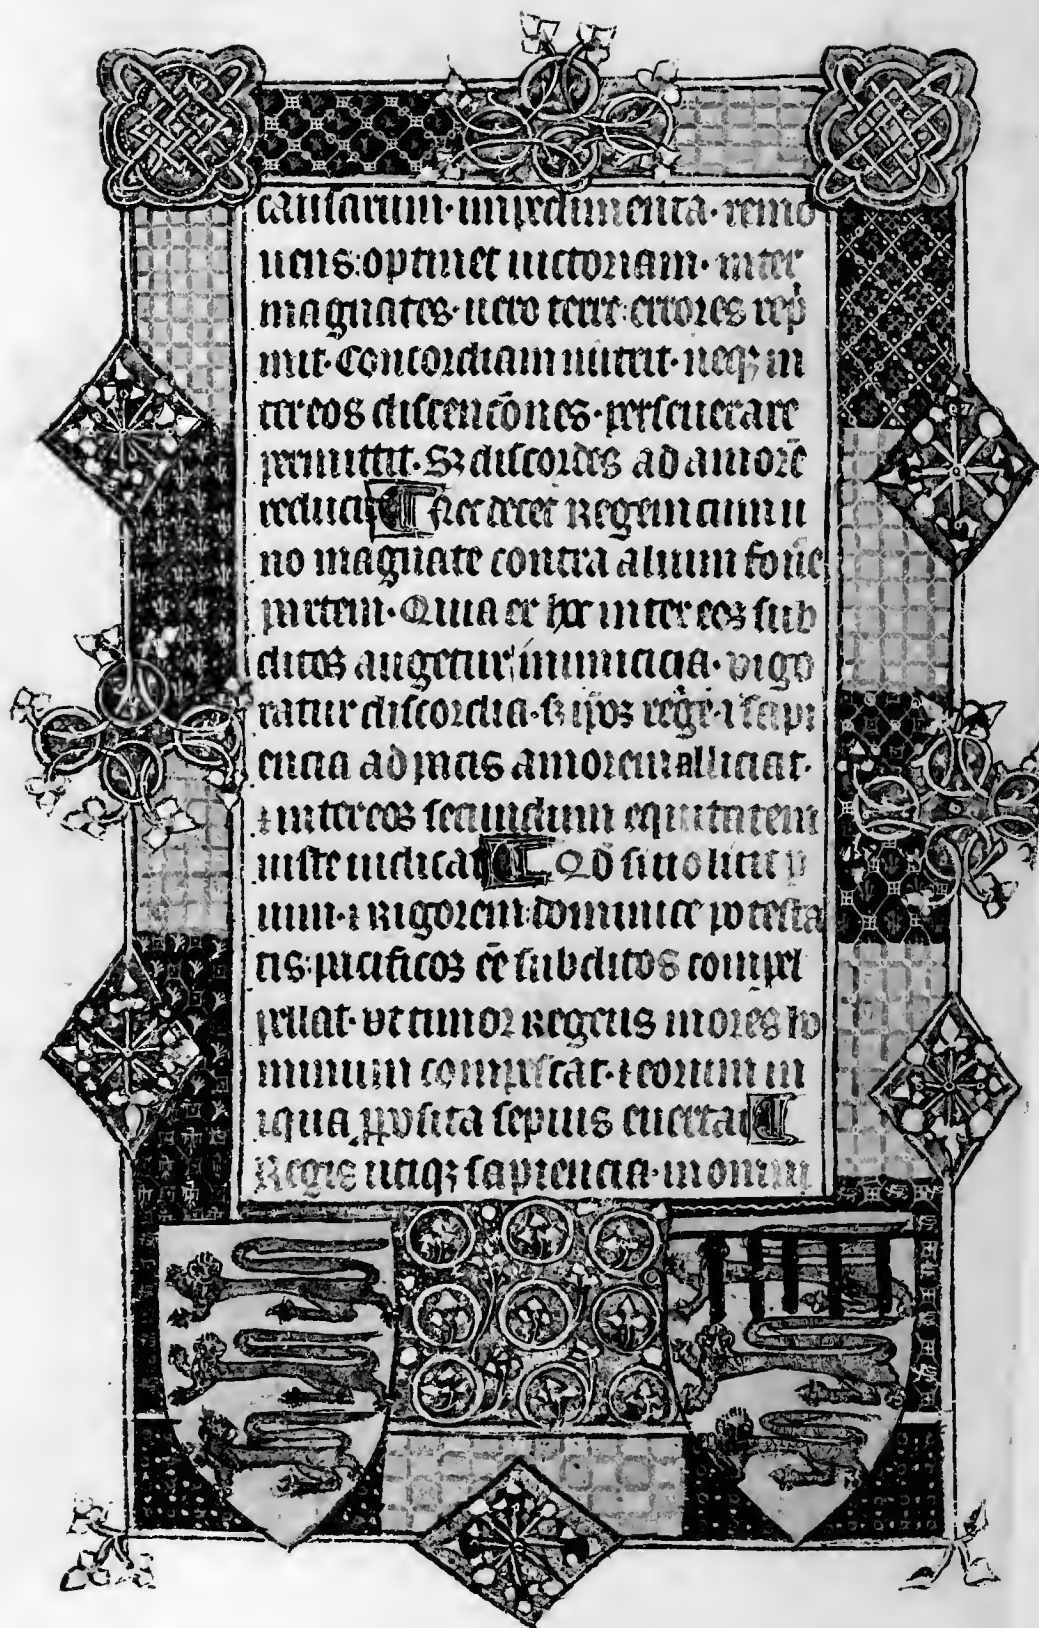 causarum · impedimenta · remo
uens : optinet uictoriam · inter
magnates · uero terre : errores rep̄
mit · Concordiam nutrit · neqꝫ in
ter eos discenc̄ones · perseuerare
permittit · Sꝫ discordes ad amorē
reducit ¶ Nec decet Regem cum u
no magnate contra alium fou̅e
partem · Quia ex hoc inter eoꝫ sub
ditos augetur inimicicia · vigo
ratur discordia · sꝫ ip̄os reg̅e · ⁊ sapi
encia ad pacis amorem alliciat ·
⁊ inter eos secundum equitatem
iuste iudicat ¶ Qd̄ si
uim · ⁊ Rigorem dominice potesta
tis · pacificos eē subditos compel
pellat · vt timor Regeus mores ho
minum compescat · ⁊ eorum in
iqua ꝓposita sepius euertat ¶
Regis utiqꝫ sapiencia ·